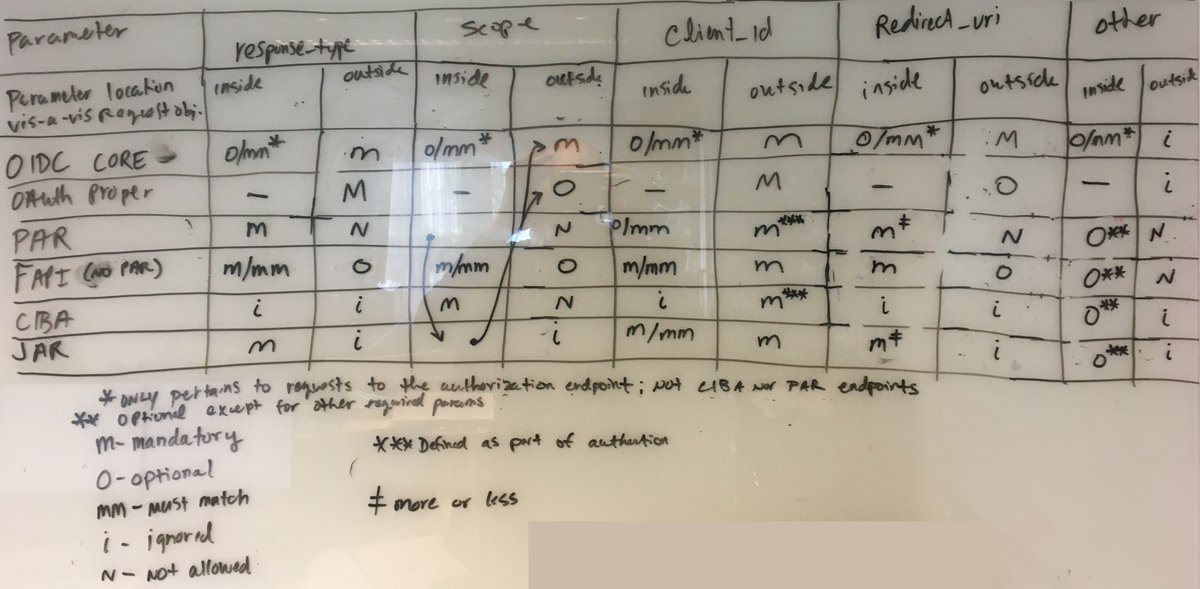 Parameter response_type Scope Client_Id Redirect_uri other
Parameter location vis-a-vis Request obj. inside outside inside outside inside outside inside outside inside outside
OIDC CORE O/mm* m O/mm* m O/mm* m O/mm* M O/mm* i
OAuth Proper — M — O — M — O — i
PAR m N N O/mm m*** m‡ N O** N
FAPI (NO PAR) m/mm O m/mm O m/mm m m O O** N
CIBA i i m N i m*** i i O** i
JAR m i i m/mm m m‡ i O** i
* only pertains to requests to the authorization endpoint; NOT CIBA NOR PAR endpoints
** Optional except for other required params
m - mandatory *** Defined as part of
O - optional
mm - must match ‡ more or less
i - ignored
N - Not allowed